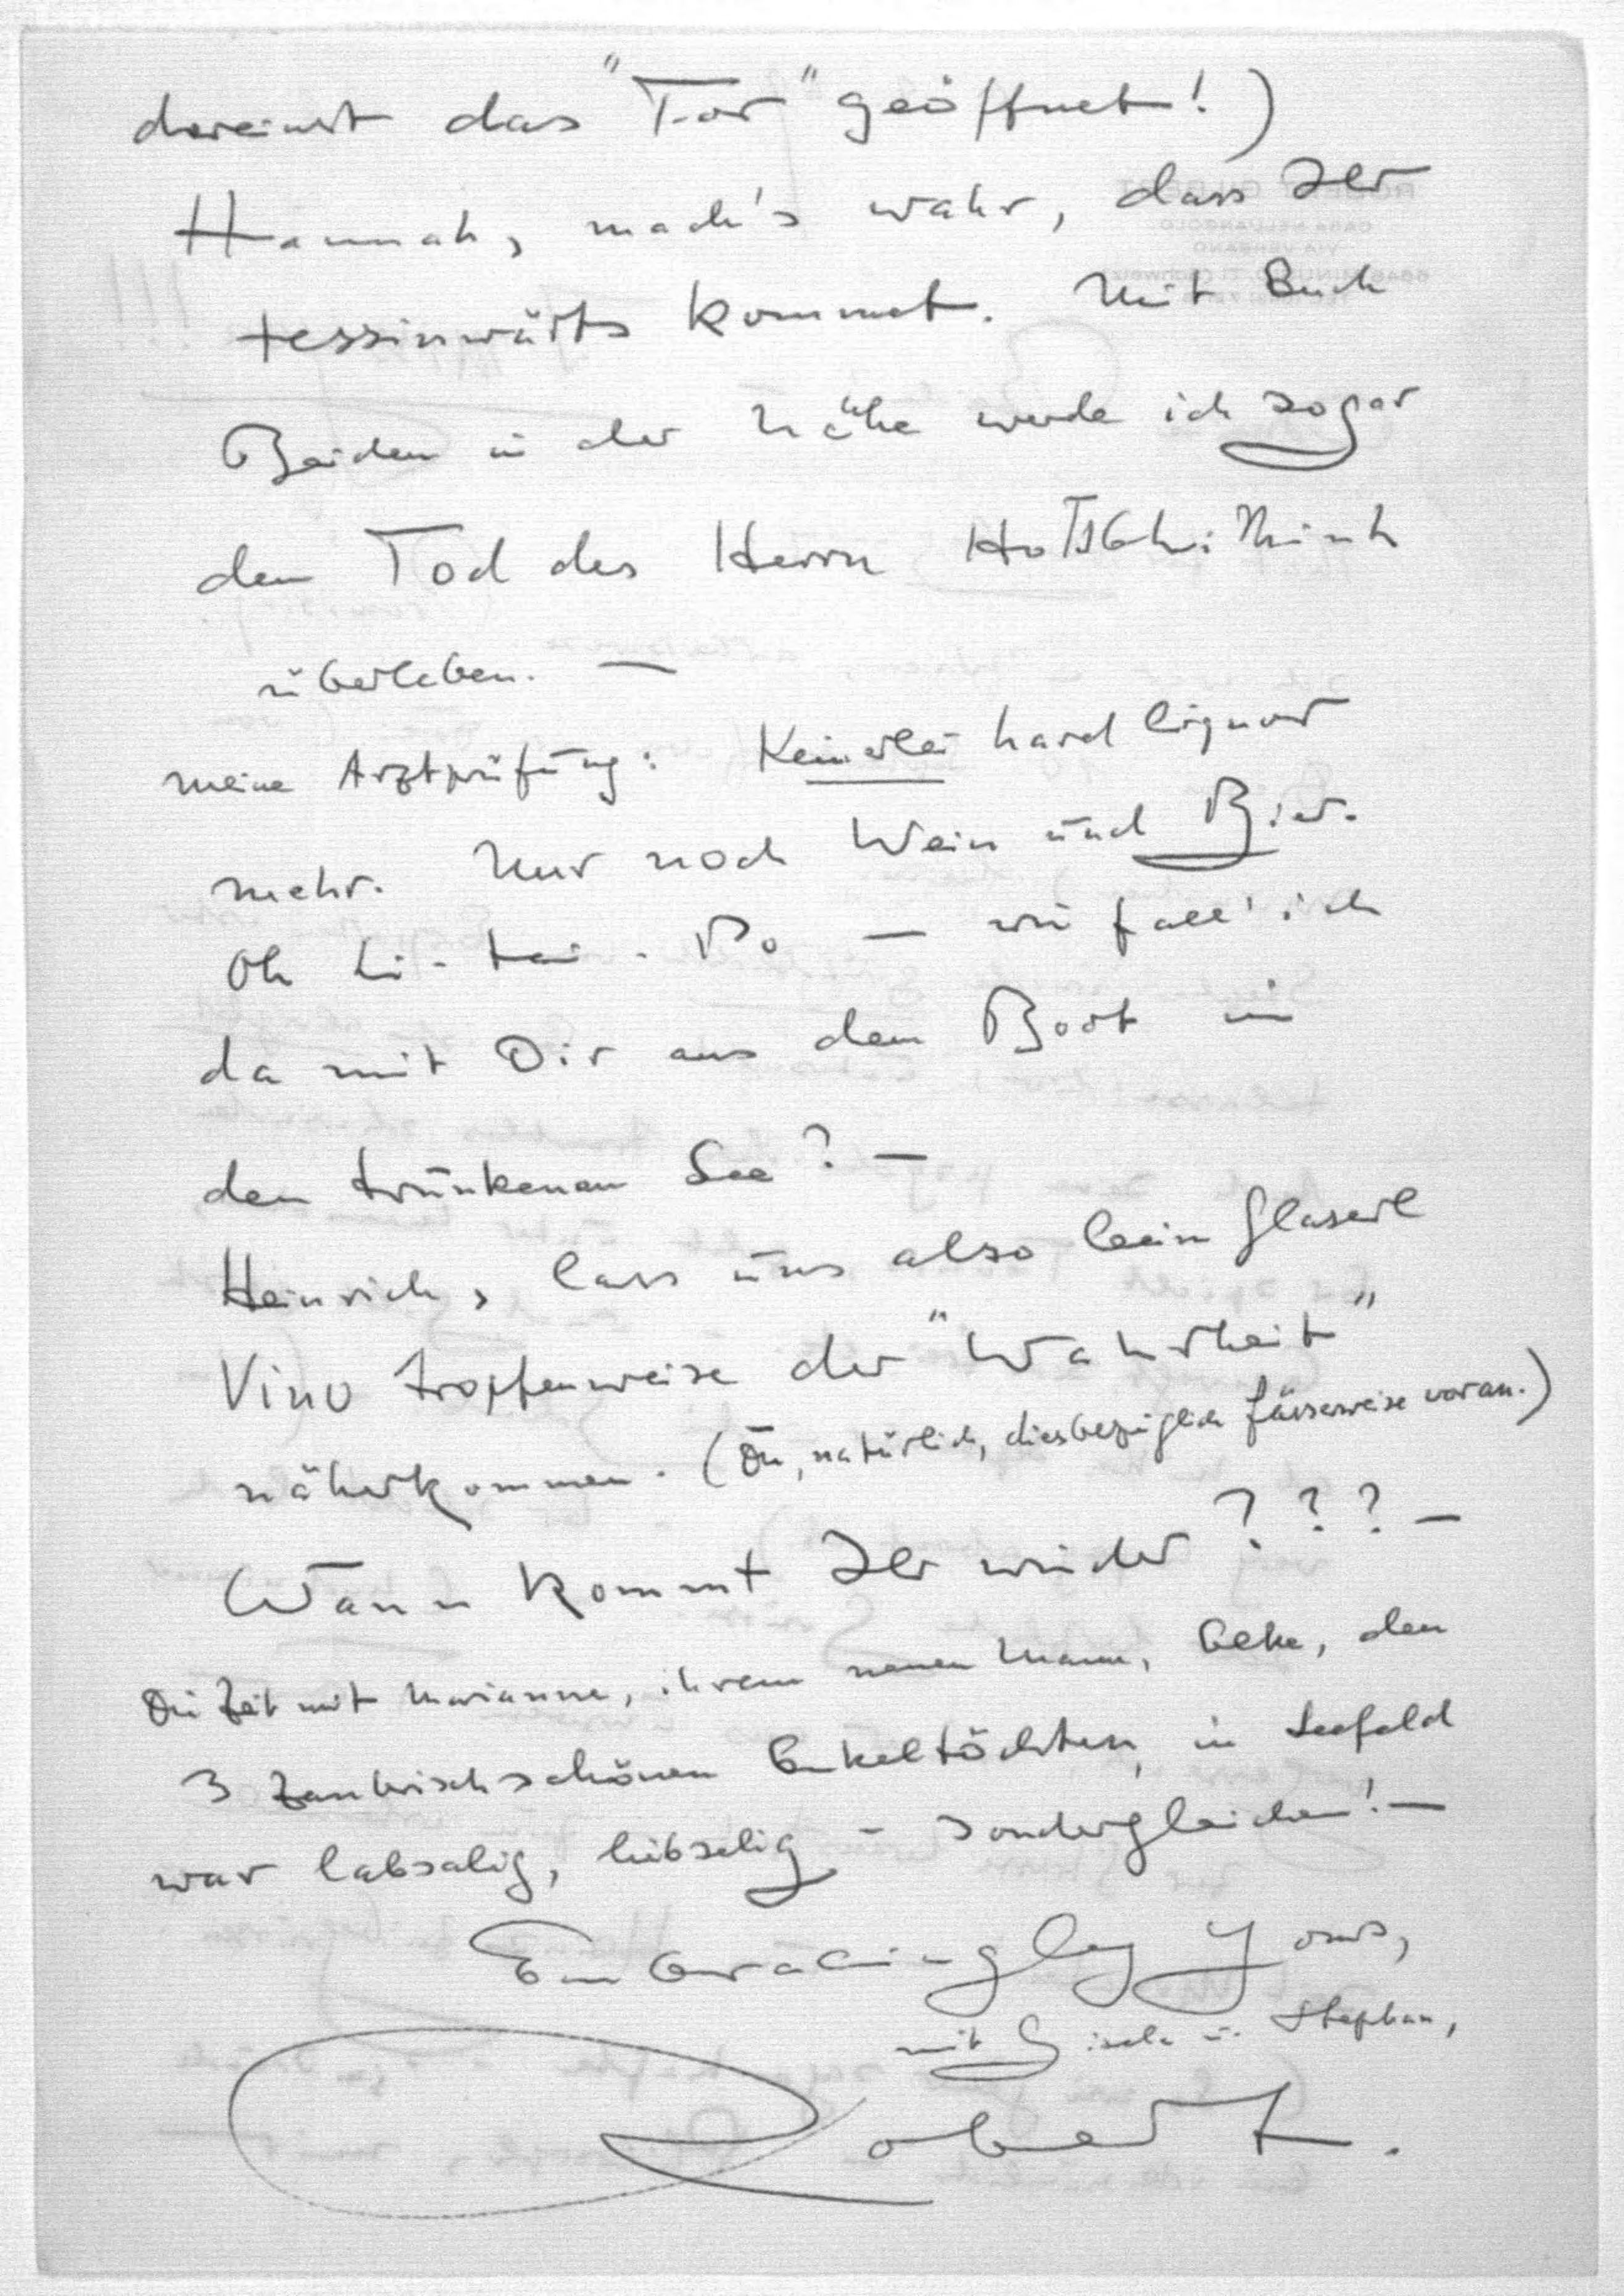 dereinst das "Tor" geöffnet!)
Hannah, mach's wahr, dass Ihr
tessinwärts kommet. Mit Euch
Beiden in der Nähe werde ich sogar
den Tod des Herrn Ho Tschi Minh
überleben. —
Meine Arztprüfung: Keinerlei hard liquor
mehr. Nur noch Wein und Bier.
Oh Li-tai-Po — wie fall' ich
da mit Dir aus dem Boot in
den trunkenen See? —
Heinrich, lass uns also beim Glaserl
Vino tropfenweise der "Wahrheit"
näherkommen. (Du, natürlich, diesbezüglich fässerweise voran.)
Wann kommt Ihr wieder???—
Die Zeit mit Marianne, ihrem neuen Mann, Beke, den
3 zaubrisch schönen Enkeltöchtern, in Seefeld
war labsalig, liebselig - sondergleichen!—
Embracingly Yours,
mit Gisela u. Stephan,
Robert.